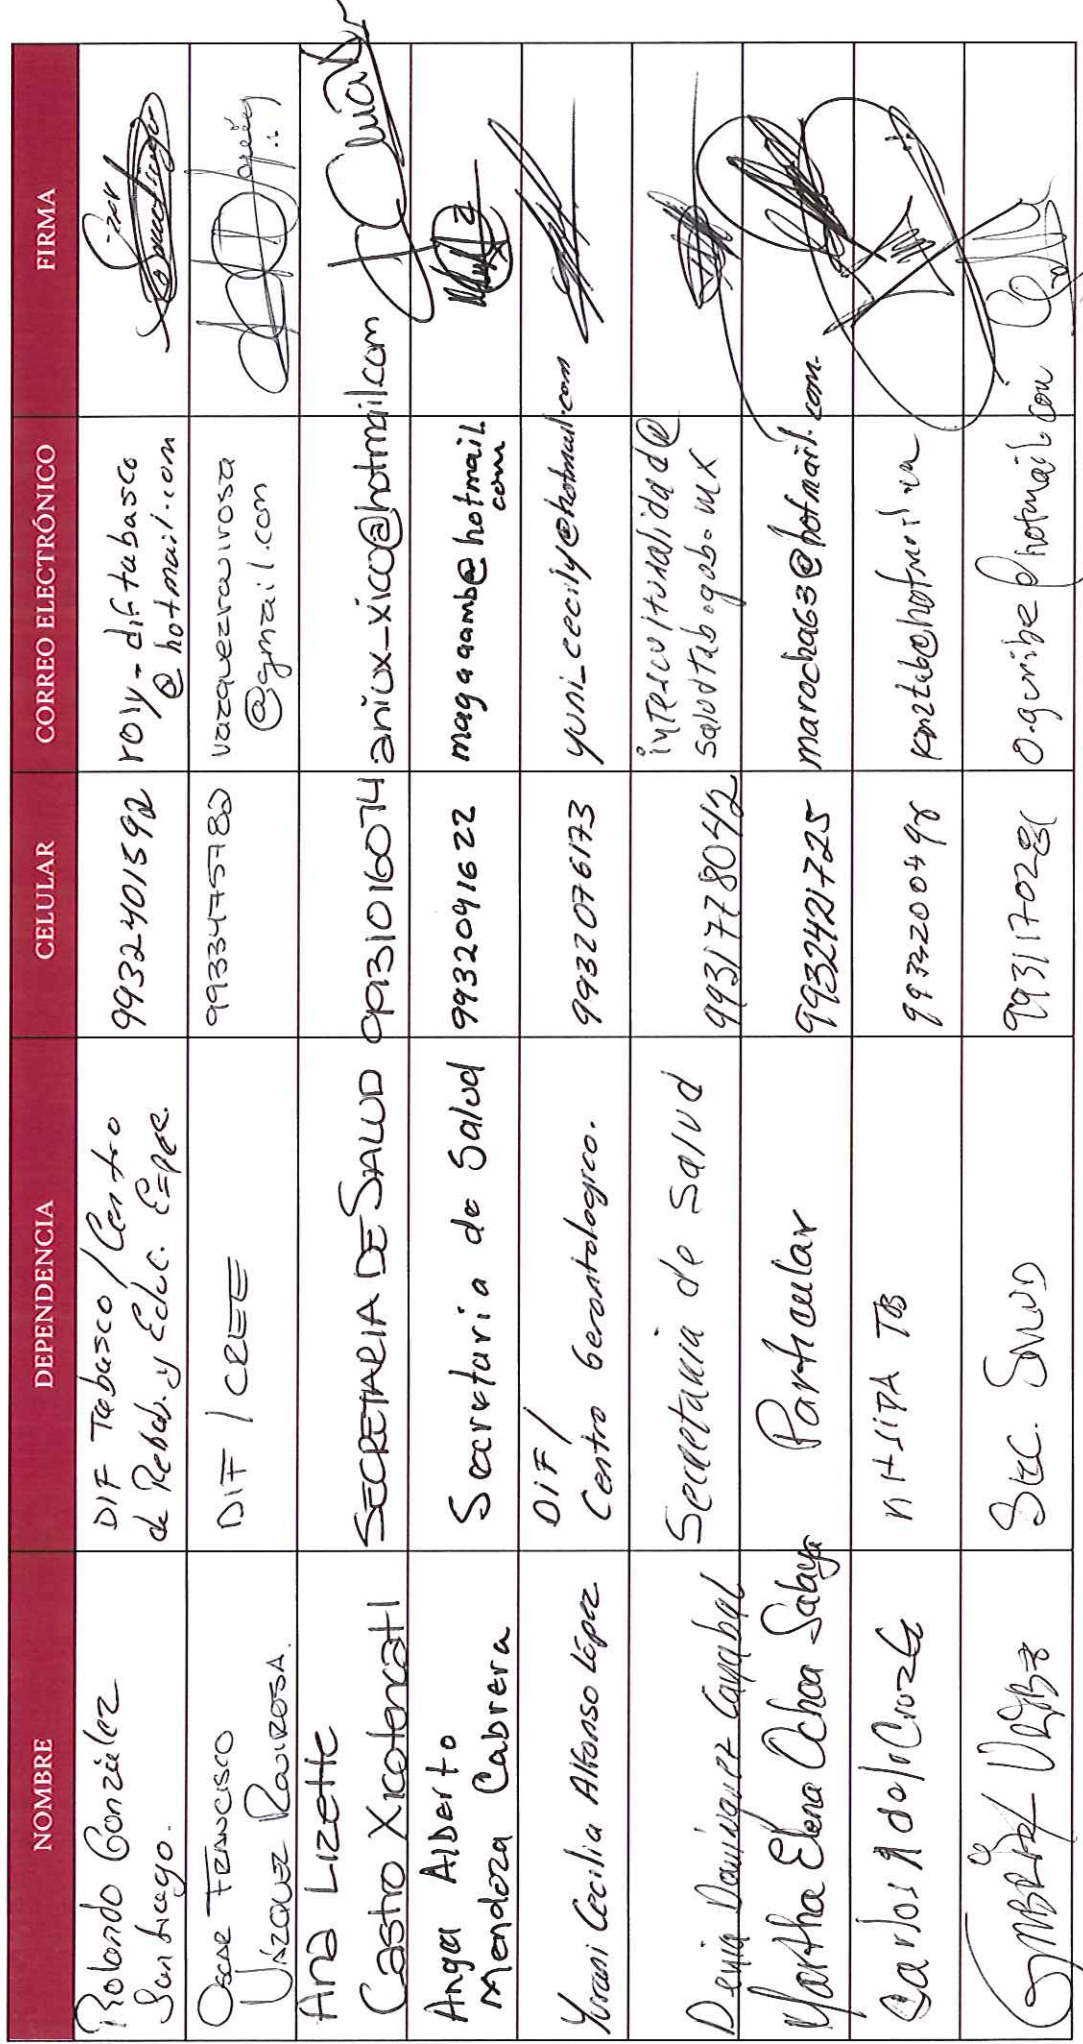 NOMBRE DEPENDENCIA CELULAR CORREO ELECTRÓNICO FIRMA
Rolando González
Santiago.
DIF Tabasco / Centro
de Rehab. y Educ. Espe.
9932401592
roly-diftabasco
@hotmail.com
OSCAR FRANCISCO
VÁZQUEZ ROVIROSA.
DIF / CREE
9933475782
vazquezrovirosa
@gmail.com
Ana Lizette
Castro Xicotencatl
SECRETARIA DE SALUD
9931016074
aniux-xico@hotmail.com
Angel Alberto
Mendoza Cabrera
Secretaria de Salud
9932091622
magaaamb@hotmail.
com
Yurani Cecilia Alfonso López
DIF /
Centro Gerontologico.
9932076173
yuni_cecily@hotmail.com
Denia Dominguez Carabal
Secretaria de Salud
9931778042
interculturalidad@
saludtab.gob.mx
Martha Elena Ochoa Salaya
Particular
9932421725
marocha63@hotmail.com.
Carlos A de la Cruz G
9931170281
SEC. SALUD